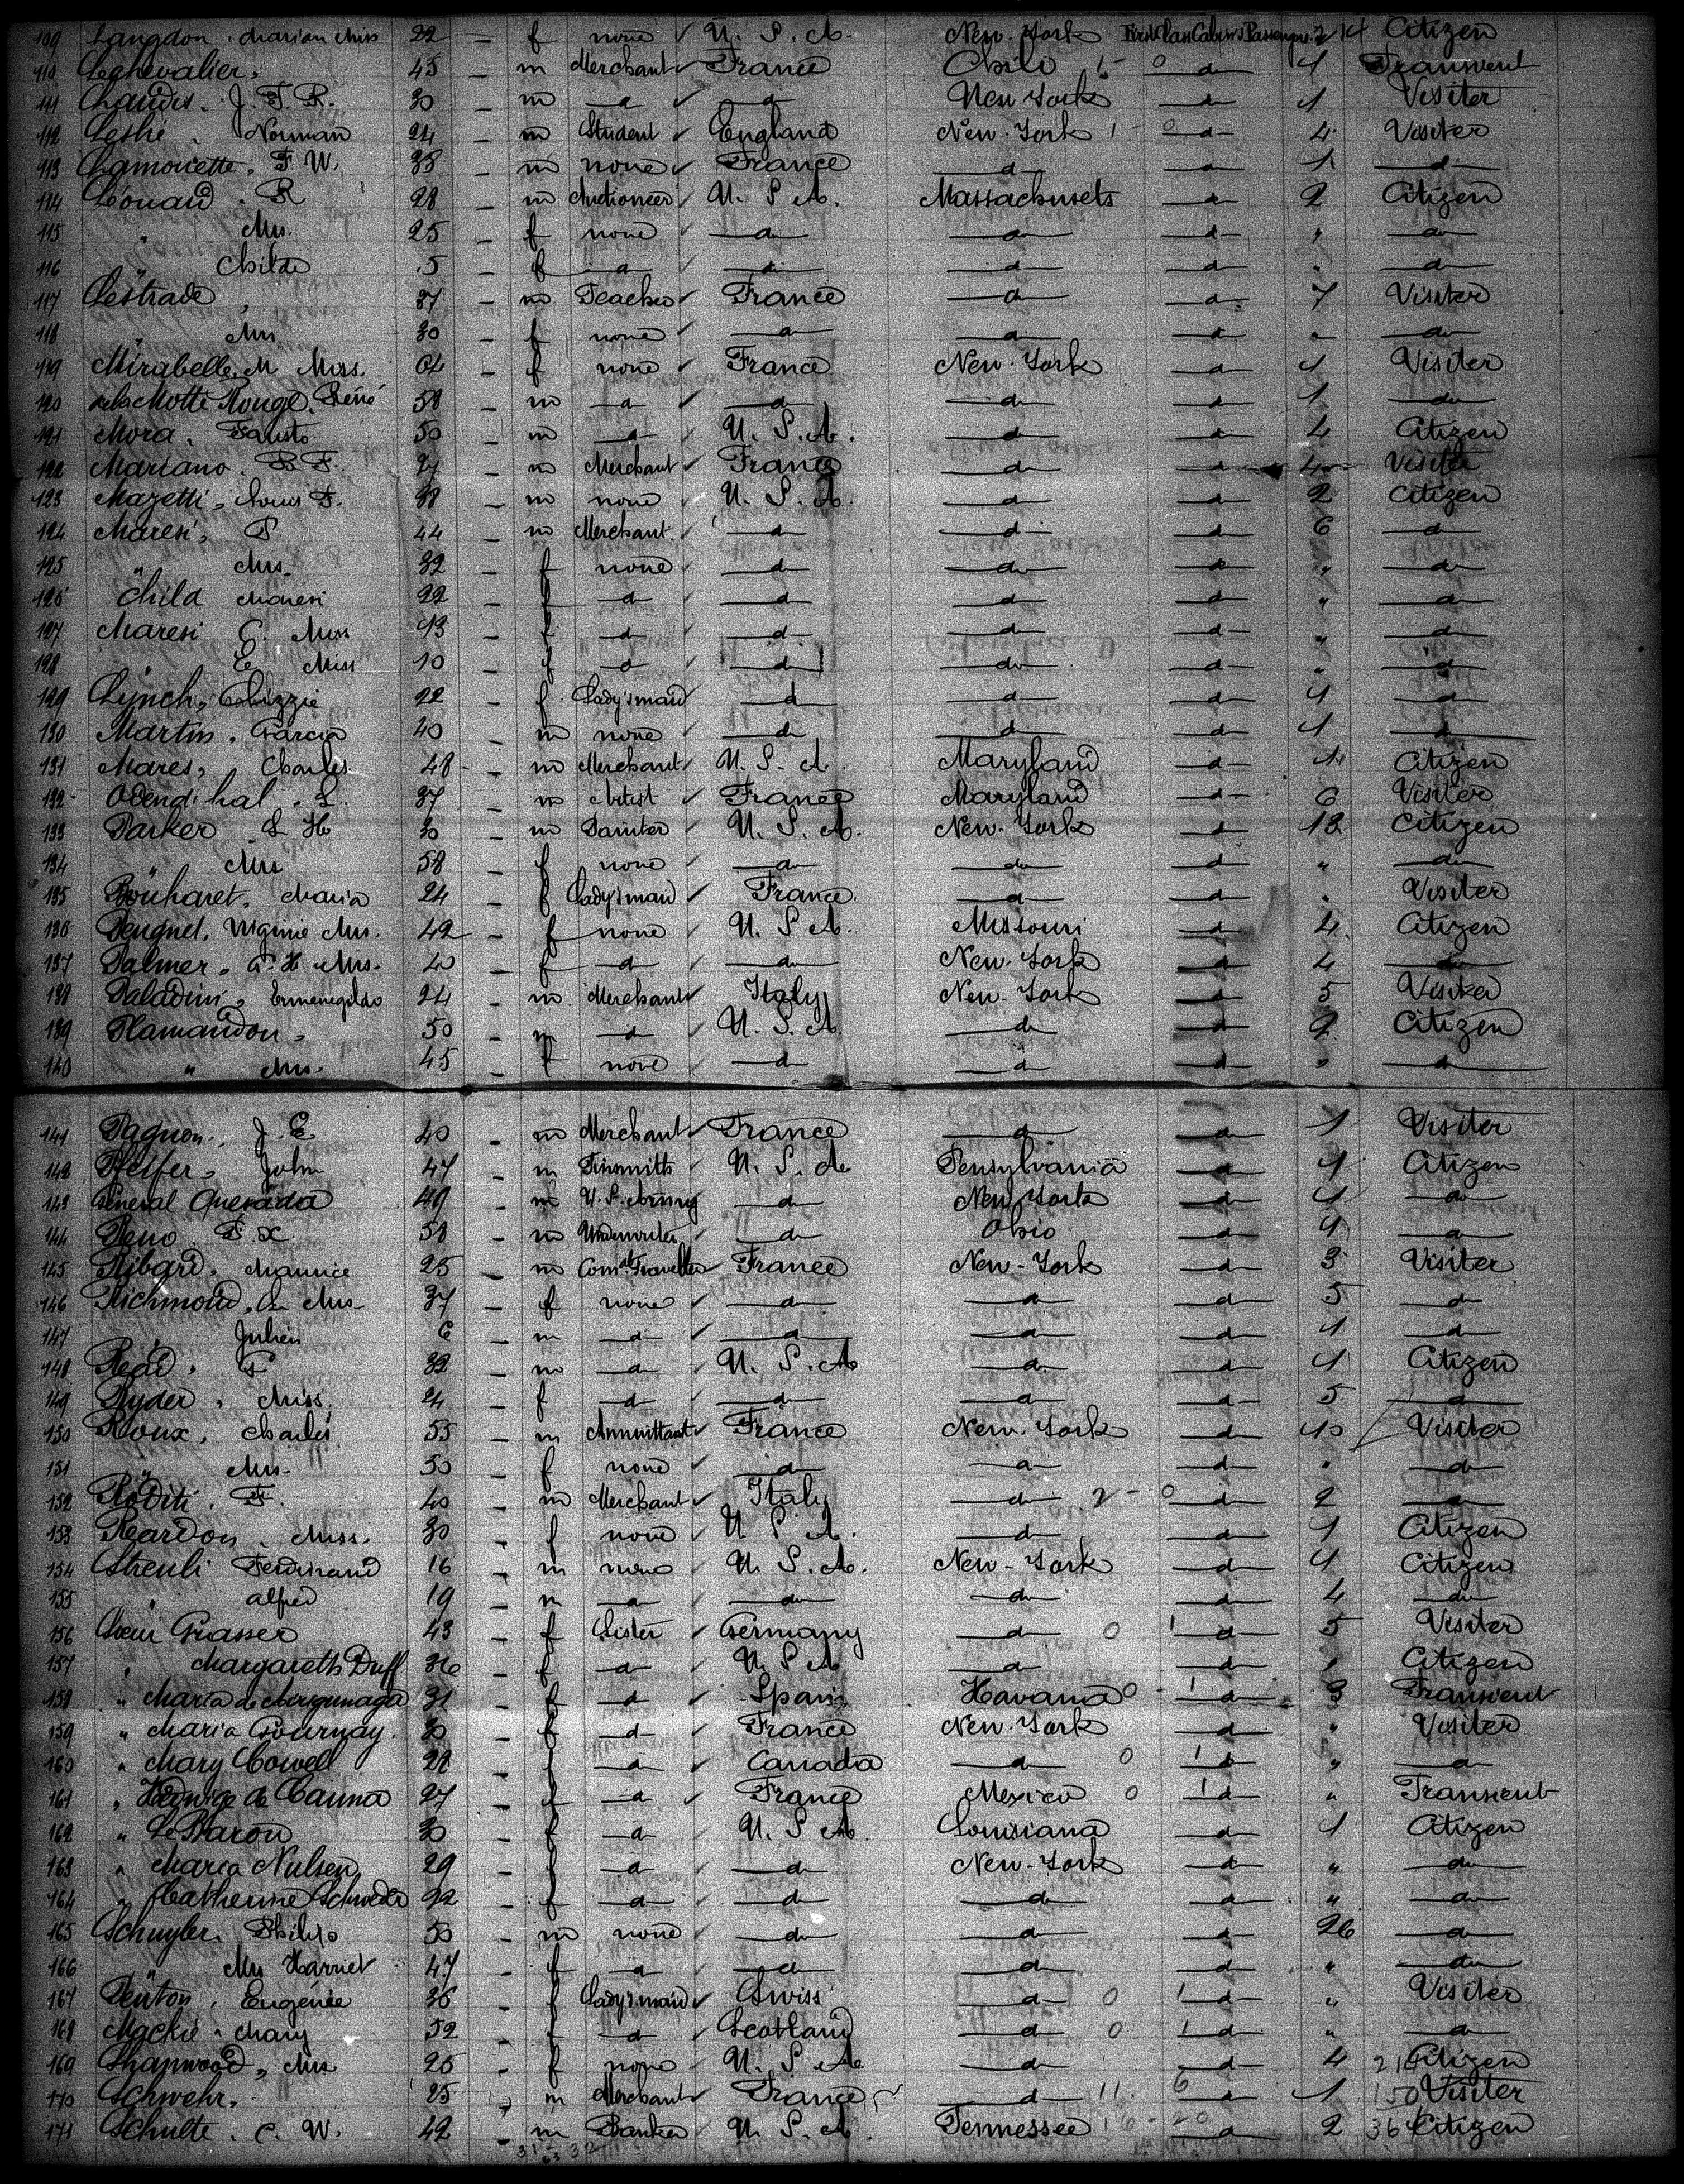 109 Langdon. Marian Miss 22 — f none ✓ U. S. A. New-York First Class Cabin Passengers 2 14 Citizen
110 Lechevalier, 45 — m Merchant ✓ France Chili 1 - 0 d 1 Transient
111 J. F. R. 30 — m d ✓ d New York d 1 Visiter
112 Leslie. Norman 24 — m Student ✓ England New-York 1 - 0 d 4 Visiter
113 Lamouette. F W. 38 — m none ✓ France d d 1 d
114 R 28 — m Auctioneer U. S. A. Massachusets d 2 Citizen
115 " Mrs. 25 — f none ✓ d d d " d
116 " Childe 5 — f d ✓ d d d " d
117 Lestrade, 37 — m Teacher ✓ France d d 7 Visiter
118 " Mrs 30 — f none ✓ d d d " d
119 Mirabelle, M Miss. — f none ✓ France New-York d 1 Visiter
120 de la Motte Rouge. Réné 58 — m d ✓ d d d 1 d
121 Mora. Fausto 50 — m d U. S. A. d d 4 Citizen
122 Mariano. B F. 27 — m Merchant ✓ France d d 4 Visiter
123 Mazetti, Louis F. 38 — m none ✓ U. S. A. d d 2 Citizen
124 Maresi, P 44 — m Merchant ✓ d d d 6 d
125 " Mrs. 32 — f none ✓ d d d " d
126 Child Maresi 22 — f d ✓ d d d " d
127 Maresi C. Miss 13 — f d ✓ d d d " d
128 " E Miss 10 — f d ✓ d do d " d
129 Lynch, Lizzie 22 — f Lady's maid d d d 1 d
130 Martin. Garcia 40 — m none ✓ d d d 1 d
131 Mares, Charles 48 — m Merchant ✓ U. S. A. Maryland d 1 Citizen
132 Odendihal. L. 37 — m Artist ✓ France Maryland d 6 Visiter
133 Parker. L H 30 — m Painter ✓ U. S. A. New-York d 12 Citizen
134 " Mrs 58 — f none ✓ d d d " d
135 Bouharet. Maria 24 f Lady's maid ✓ France d d " Visiter
136 Peugnet. Virginie Mrs. 42 — f none ✓ U. S. A. Missouri d 4 Citizen
137 Palmer. G. H Mrs. 40 — f d ✓ d New-York d 4 d
138 Paladini, Ermenegildo 24 — m Merchant ✓ Italy New-York d 5 Visiter
139 Plamandon, 50 — m d ✓ U. S. A. d d 2 Citizen
140 " Mrs. 45 — f none ✓ d d d " d
141 Pagnon, J. E 40 — m Merchant ✓ France d d 1 Visiter
142 Pfeifer, John 47 — m Tinsmith ✓ U. S. A. Pensylvania d 1 Citizen
143 Général Quesada 49 — m d New York d 1 d
144 Reno. F. X. 58 — m Underwriter d Ohio d 1 d
145 Ribard. Maurice 25 — m Comal Traveller France New-York d 3 Visiter
146 Richmond, Mrs. 37 — f none ✓ d d d 5 d
147 " Julien 6 — m d ✓ d d d 1 d
148 Read. 32 — m d ✓ U. S. A. d d 1 Citizen
149 Ryder. Miss. 24 — f d ✓ d d d 5 d
150 Roux, Charles 55 — m Annuittant ✓ France New-York d 10 Visiter
151 " Mrs. 50 — f none ✓ d d d " d
152 Roditi. F. 40 — m Merchant ✓ Italy d 2 - 0 d 2 d
153 Reardon. Miss. 30 — f none ✓ U. S. A. d d 1 Citizen
154 Streuli Ferdinand 16 — m none ✓ U. S. A. New-York d 1 Citizen
155 " alfred 19 — m d ✓ d d d 4 d
156 Soeur Grasser 43 — f Sister ✓ Germany d 0 1 d 5 Visiter
157 " Margareth Duff 36 — f d ✓ U. S. A d d 1 Citizen
158 " Maria de 31 — f d ✓ Spain Havana 0 - 1 d 3 Transient
159 " Maria Gournay. 30 — f d ✓ France New-York d " Visiter
160 " Mary Cowell 28 — f d ✓ Canada d 0 1 d " d
161 " Hedwige de Cauna 27 — f d ✓ France Mexico 0 1 d " Transient
162 " Le Baron 30 — f d ✓ U. S. A. Louisiana d 1 Citizen
163 " Maria Nulsen 29 — f d ✓ d New-York d " d
164 " Catherine 22 — f d ✓ d d d " d
165 Schuyler. Philip 50 — m none ✓ d d d 26 d
166 " Mrs Harriet 47 — f d ✓ d d d " d
167 Penton, Eugénie 36 — f Lady's maid ✓ Swiss d 0 1 d " Visiter
168 Mackie. Mary 52 — f d ✓ Scotland d 0 1 d " d
169 Shapwood, Mrs 25 — f none ✓ U. S. A d d 4 Citizen
170 Schwehr. 25 m Merchant ✓ France d 11. 6 d 1 150 Visiter
171 Schulte. C. W. 42 — m Banker ✓ U. S. A. Tennessee 16 - 20 d 2 364 Citizen